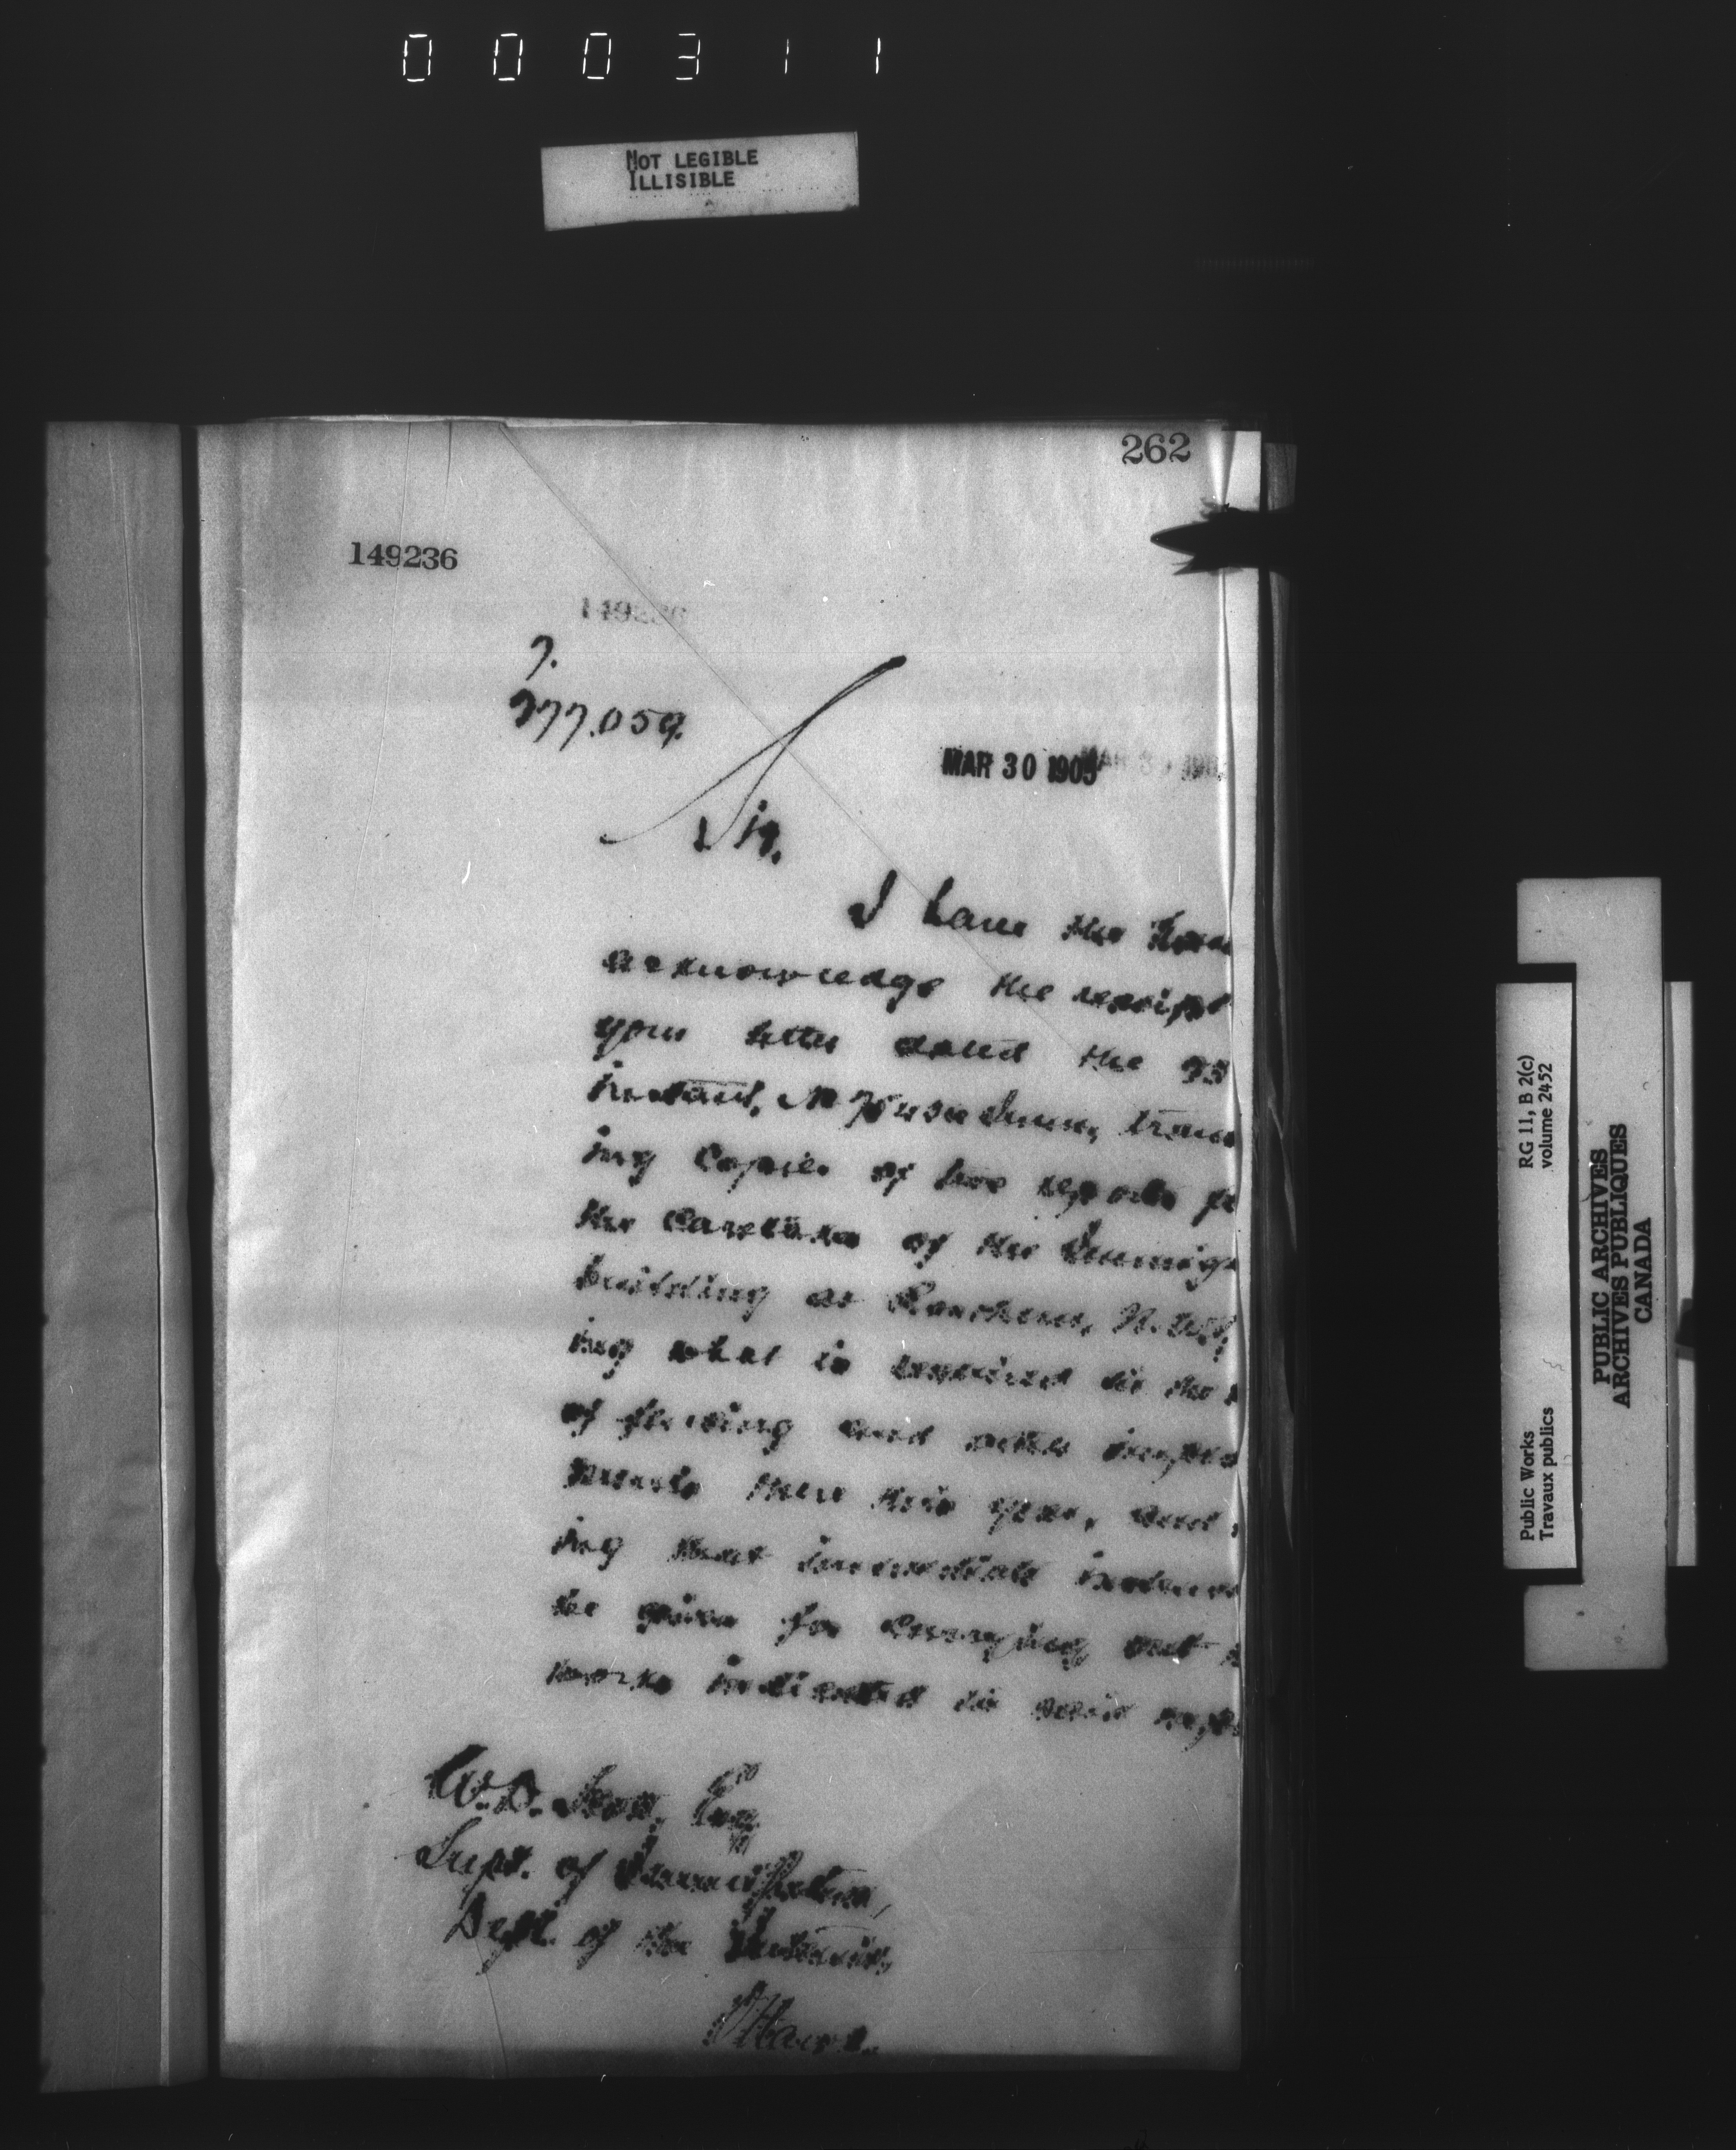 000311
NOT LEGIBLE
ILLISIBLE
262
149236
149236
7.
277.059.
MAR 30 1905 MAR 30 190
Sir,
I have the hono
acknowledge the receipt
your letter dated the 25
instant, trans
ing copies of two reports
the Caretaker of the Immig
building at N.W.T.
ing what is required in the
of fencing and other improve
ments there this year, and
ing that immediate
be given for carrying out
works indicated in said
W.D. Scott, Esq
Supt. of Immigration,
Dept. of the Interior,
Ottawa.
Public Works RG 11, B 2(c)
Travaux publics volume 2452
PUBLIC ARCHIVES
ARCHIVES PUBLIQUES
CANADA